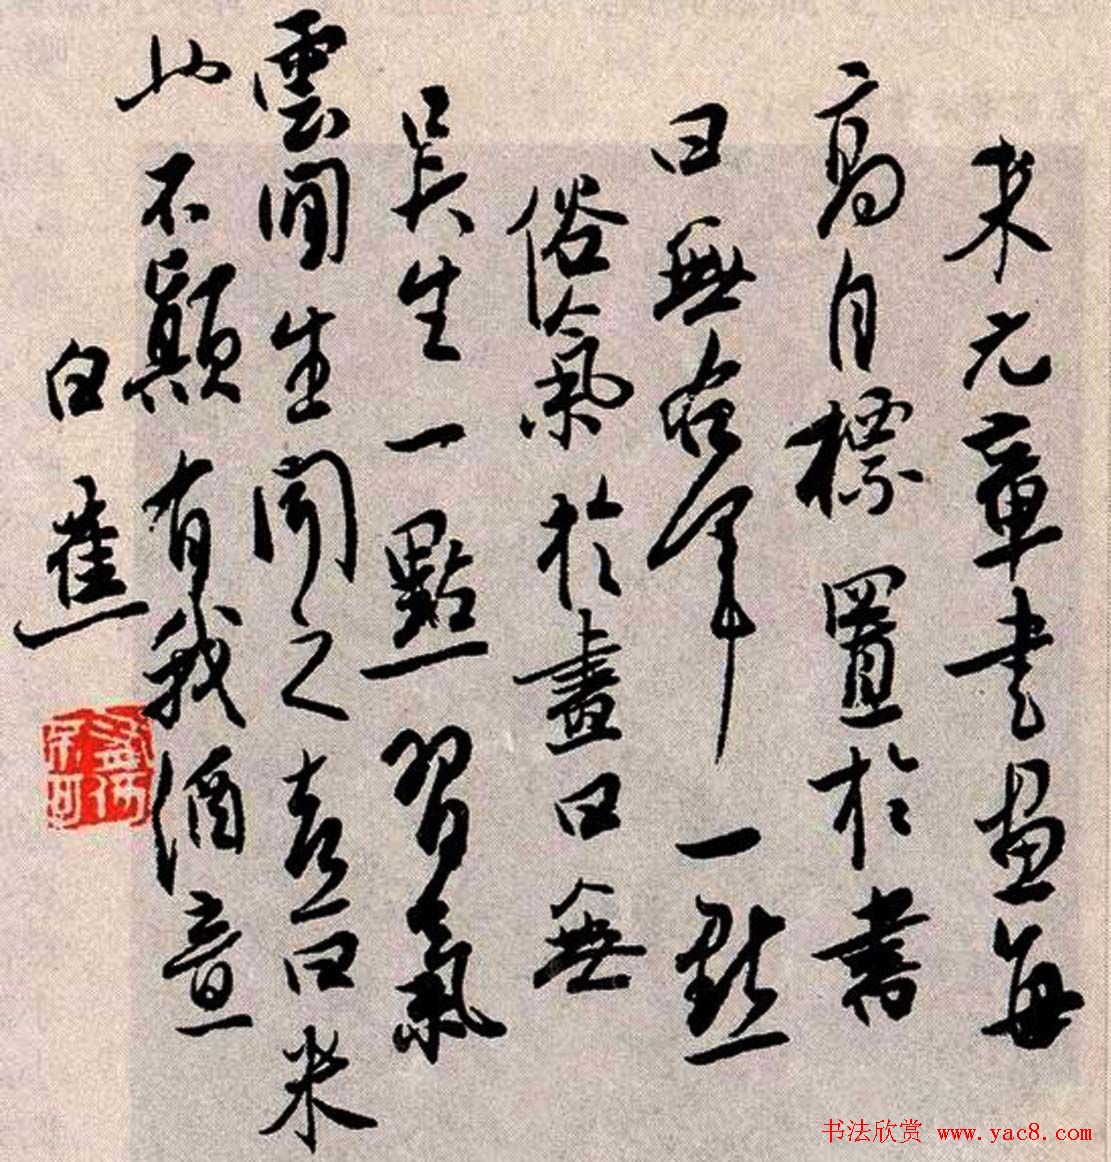 米元章書畫每
高自標置於書
曰無右軍一點
俗氣於畫曰無
吳生一點習氣
雲間生聞之喜曰米
也不顛有我酒意
白蕉
书法欣赏 www.yac8.com